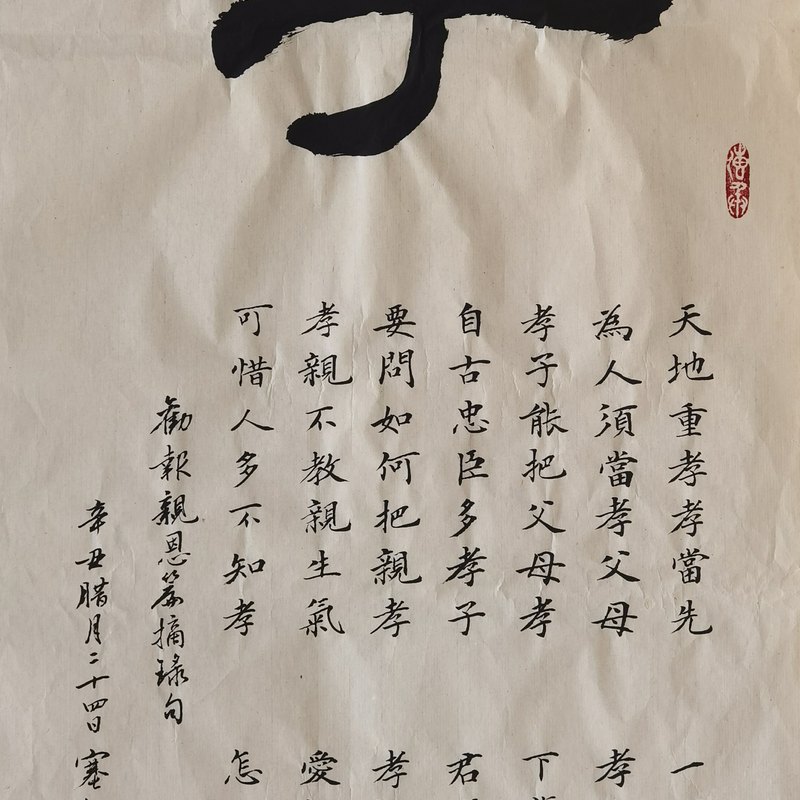 天地重孝孝當先 一
為人須當孝父母 孝
孝子能把父母孝 下
自古忠臣多孝子 君
要問如何把親孝 孝
孝親不教親生氣 愛
可惜人多不知孝 怎
勸報親恩篇摘録句
辛丑腊月二十四日 塞